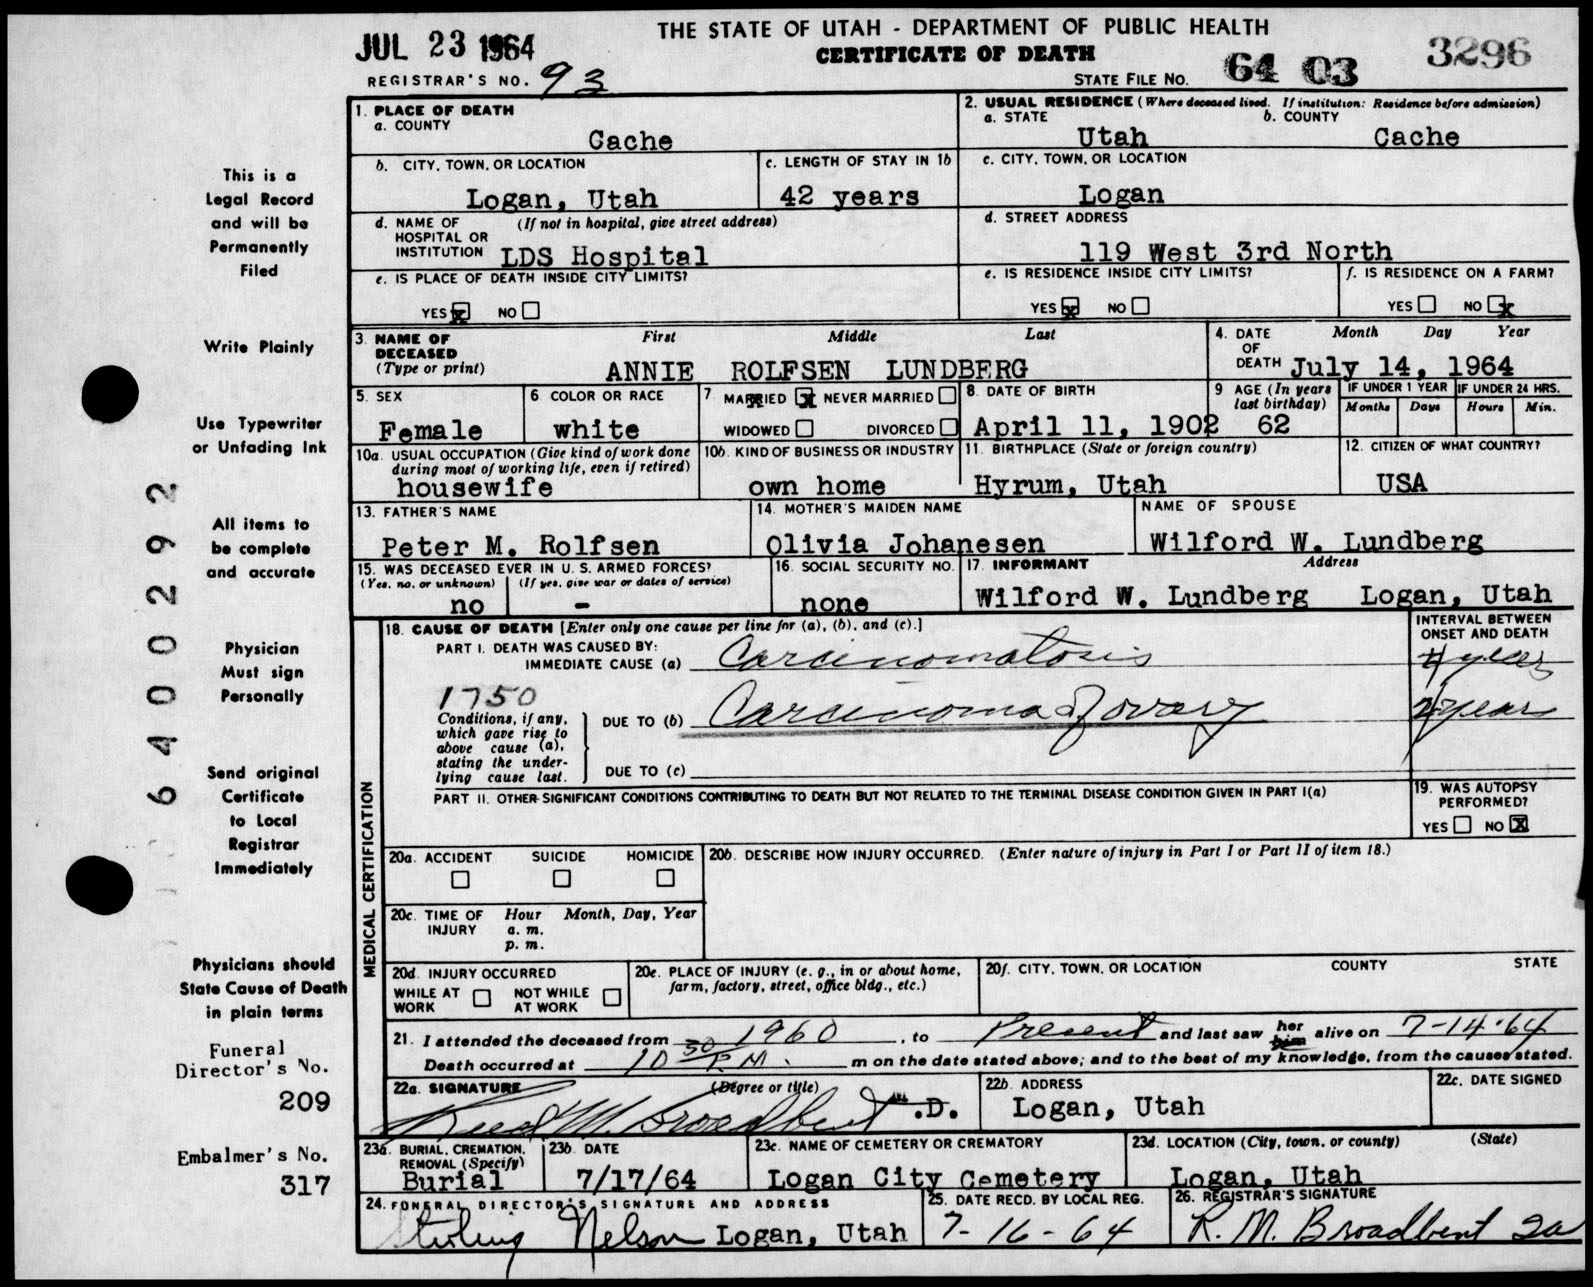 THE STATE OF UTAH - DEPARTMENT OF PUBLIC HEALTH
JUL 23 1964
CERTIFICATE OF DEATH
REGISTRAR'S NO. 93
STATE FILE NO. 64 03 3296
1. PLACE OF DEATH
a. COUNTY
Cache
2. USUAL RESIDENCE (Where deceased lived. If institution: Residence before admission)
a. STATE
Utah
b. COUNTY
Cache
b. CITY, TOWN, OR LOCATION
Logan, Utah
c. LENGTH OF STAY IN 1b
42 years
c. CITY, TOWN, OR LOCATION
Logan
d. NAME OF (If not in hospital, give street address)
HOSPITAL OR
INSTITUTION LDS Hospital
d. STREET ADDRESS
119 West 3rd North
e. IS PLACE OF DEATH INSIDE CITY LIMITS?
YES x NO
e. IS RESIDENCE INSIDE CITY LIMITS?
YES x NO
f. IS RESIDENCE ON A FARM?
YES NO x
3. NAME OF DECEASED (Type or print)
First Middle Last
ANNIE ROLFSEN LUNDBERG
4. DATE OF DEATH Month Day Year
July 14, 1964
5. SEX
Female
6 COLOR OR RACE
white
7 MARRIED x NEVER MARRIED
WIDOWED DIVORCED
8. DATE OF BIRTH
April 11, 1902
9 AGE (In years last birthday)
62
IF UNDER 1 YEAR IF UNDER 24 HRS.
Months Days Hours Min.
10a. USUAL OCCUPATION (Give kind of work done
during most of working life, even if retired)
housewife
10b. KIND OF BUSINESS OR INDUSTRY
own home
11. BIRTHPLACE (State or foreign country)
Hyrum, Utah
12. CITIZEN OF WHAT COUNTRY?
USA
13. FATHER'S NAME
Peter M. Rolfsen
14. MOTHER'S MAIDEN NAME
Olivia Johanesen
NAME OF SPOUSE
Wilford W. Lundberg
15. WAS DECEASED EVER IN U. S. ARMED FORCES?
(Yes, no, or unknown) (If yes, give war or dates of service)
no -
16. SOCIAL SECURITY NO.
none
17. INFORMANT Address
Wilford W. Lundberg Logan, Utah
18. CAUSE OF DEATH [Enter only one cause per line for (a), (b), and (c).]
INTERVAL BETWEEN
ONSET AND DEATH
PART I. DEATH WAS CAUSED BY:
IMMEDIATE CAUSE (a) Carcinomatosis
years
1750
Conditions, if any,
which gave rise to
above cause (a),
stating the under-
lying cause last.
DUE TO (b) Carcinoma of ovary
years
DUE TO (c)
PART II. OTHER SIGNIFICANT CONDITIONS CONTRIBUTING TO DEATH BUT NOT RELATED TO THE TERMINAL DISEASE CONDITION GIVEN IN PART I(a)
19. WAS AUTOPSY
PERFORMED?
YES NO X
MEDICAL CERTIFICATION
20a. ACCIDENT SUICIDE HOMICIDE
20b. DESCRIBE HOW INJURY OCCURRED. (Enter nature of injury in Part I or Part II of item 18.)
20c. TIME OF INJURY Hour Month, Day, Year
a. m.
p. m.
20d. INJURY OCCURRED
WHILE AT WORK NOT WHILE AT WORK
20e. PLACE OF INJURY (e. g., in or about home,
farm, factory, street, office bldg., etc.)
20f. CITY, TOWN, OR LOCATION COUNTY STATE
21. I attended the deceased from 1960, to Present and last saw her him alive on 7-14-64
Death occurred at 10 30 P.M. m on the date stated above; and to the best of my knowledge, from the causes stated.
22a. SIGNATURE (Degree or title)
M. Broadbent M.D.
22b. ADDRESS
Logan, Utah
22c. DATE SIGNED
23a. BURIAL, CREMATION,
REMOVAL (Specify)
Burial
23b. DATE
7/17/64
23c. NAME OF CEMETERY OR CREMATORY
Logan City Cemetery
23d. LOCATION (City, town, or county) (State)
Logan, Utah
24. FUNERAL DIRECTOR'S SIGNATURE AND ADDRESS
Sterling Nelson Logan, Utah
25. DATE RECD. BY LOCAL REG.
7-16-64
26. REGISTRAR'S SIGNATURE
R. M. Broadbent
This is a
Legal Record
and will be
Permanently
Filed
Write Plainly
Use Typewriter
or Unfading Ink
All items to
be complete
and accurate
Physician
Must sign
Personally
Send original
Certificate
to Local
Registrar
Immediately
Physicians should
State Cause of Death
in plain terms
Funeral
Director's No.
209
Embalmer's No.
317
6400292